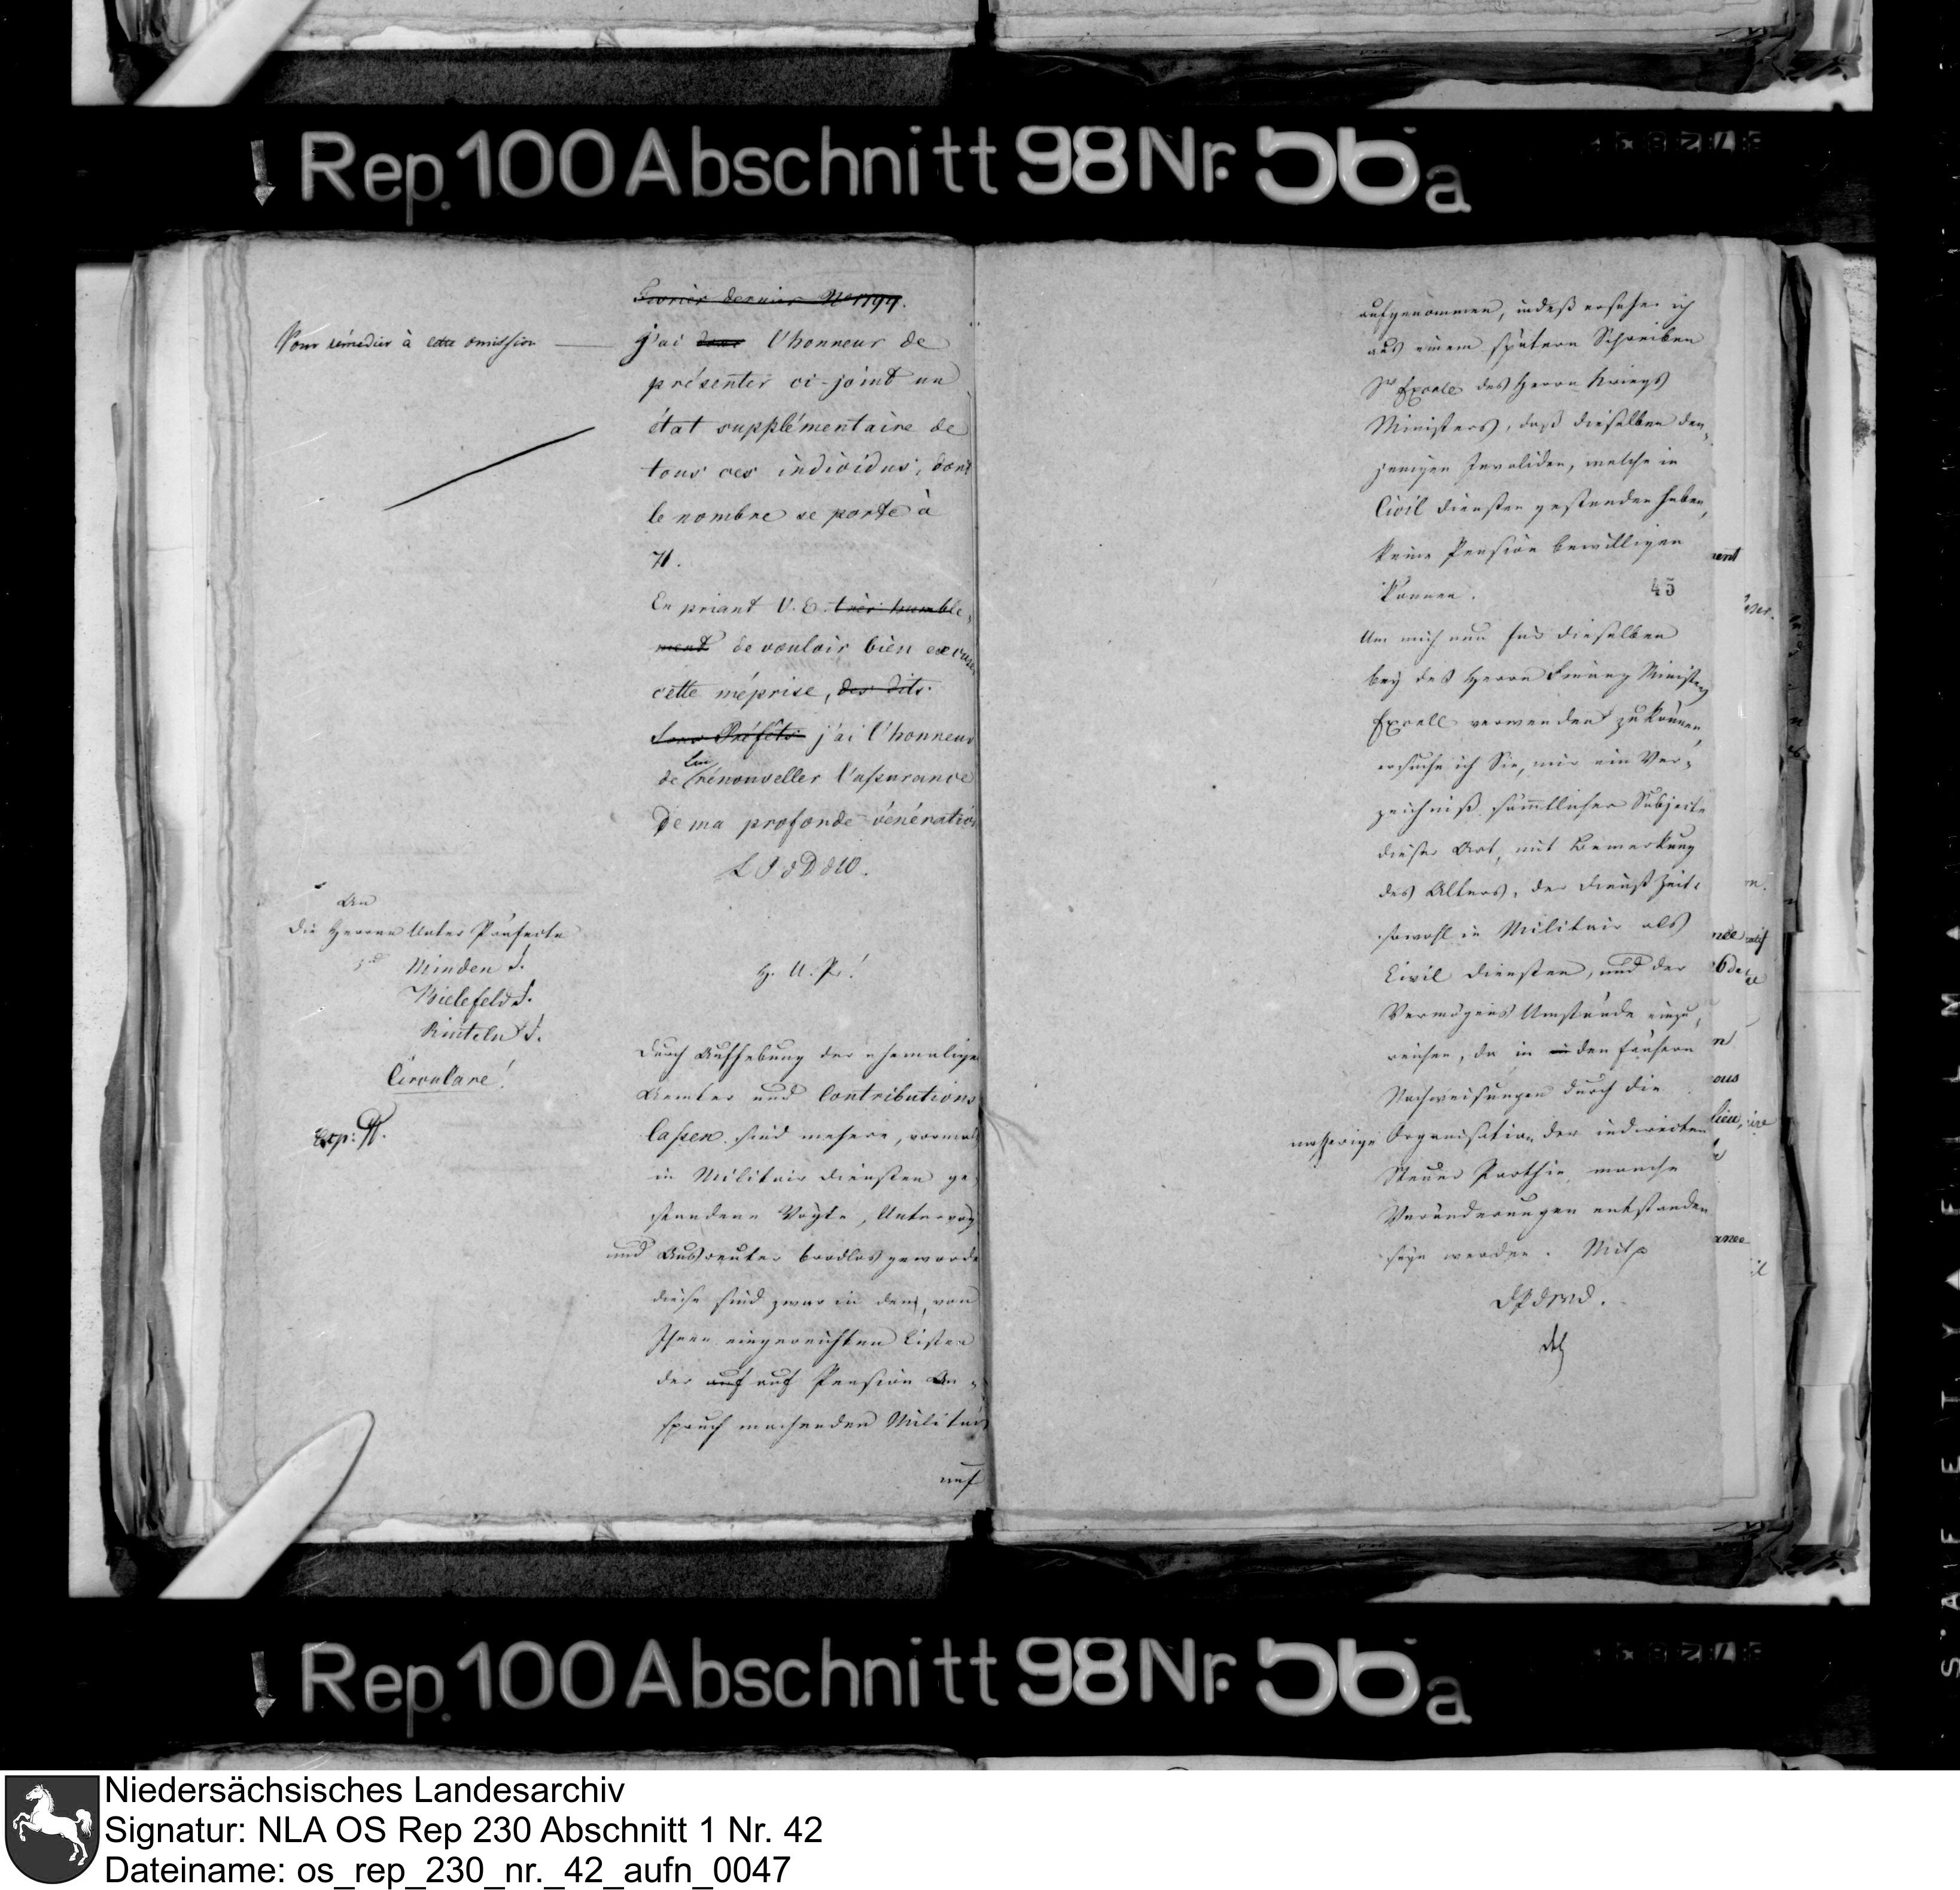 Rep. 100 Abschnitt 98 Nr. 56a
Fevrier dernier No 1799.
Pour rémedier à cette omission
j'ai donc l'honneur de
présenter ci-joint un
état supplémentaire de
tous ces individus, dont
le nombre se porte à
71.
En priant V. E. très humble-
ment de vouloir bien excuser
cette méprise, des dits
Sous Préfets j'ai l'honneur
de Lui rénouveller l'assurance
De ma profonde vénération
L P d D d W.
An
die Herren Unter Präfecte
Minden
Bielefeld
Rinteln
Circulare!
H. U. P.!
Durch Aufhebung der ehemaligen
Aemter und Contributions
Cassen sind mehere, vormals
in Militair diensten ge-
standene Vögte, Untervög
und Ausreuter brodlos geworde
diese sind zwar in den, von
Ihnen eingereichten Listen
der auf auf Pension An-
spruch machenden Militair
auf
aufgenommen, indeß ersehe ich
aus einem spätern Schreiben
Sr Excell. des Herrn Kriegs
Ministers, daß dieselben den-
jenigen Invaliden, welche in
Civil diensten gestanden haben,
keine Pension bewilligen
können.
45
Um mich nun für dieselben
bey des Herrn Finanz Ministers
Excell verwenden zu können,
ersuche ich Sie, mir ein Ver-
zeichniß sämtlicher Subjecte
dieser Art, mit Bemerkung
des Alters, der Dienst Zeit,
sowohl in Militair als
Civil diensten, und der
Vermögens Umstände einzu-
reichen, da in den frühern
Nachweisungen durch die
Organisation der indirecten
Steuer Parthie, manche
Veränderungen entstanden
seyn werden. Mit p
D P d W d.
Rep. 100 Abschnitt 98 Nr. 56a
Niedersächsisches Landesarchiv
Signatur: NLA OS Rep 230 Abschnitt 1 Nr. 42
Dateiname: os_rep_230_nr._42_aufn_0047